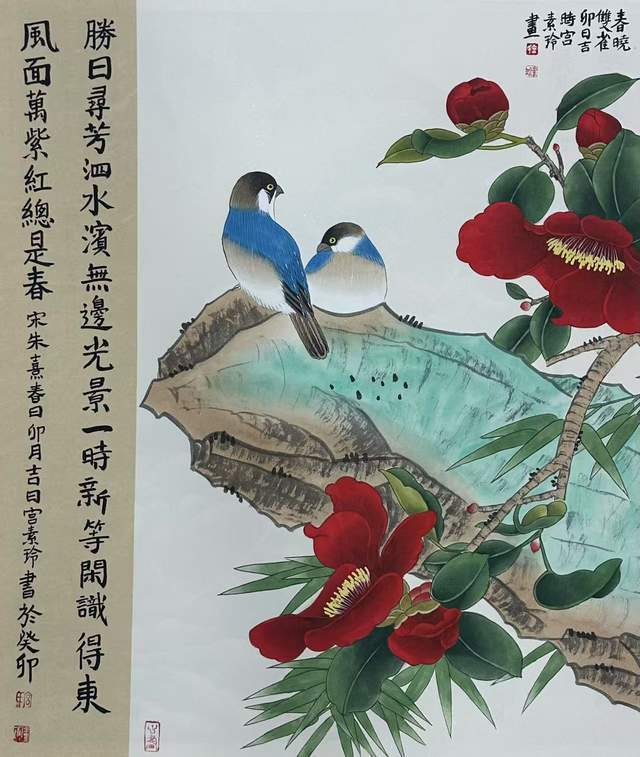 春曉
雙雀
卯日吉
時宮
素玲
畫
勝日尋芳泗水濱無邊光景一時新等閑識得東
風面萬紫紅總是春 宋朱熹春日卯月吉日宮素玲書於癸卯